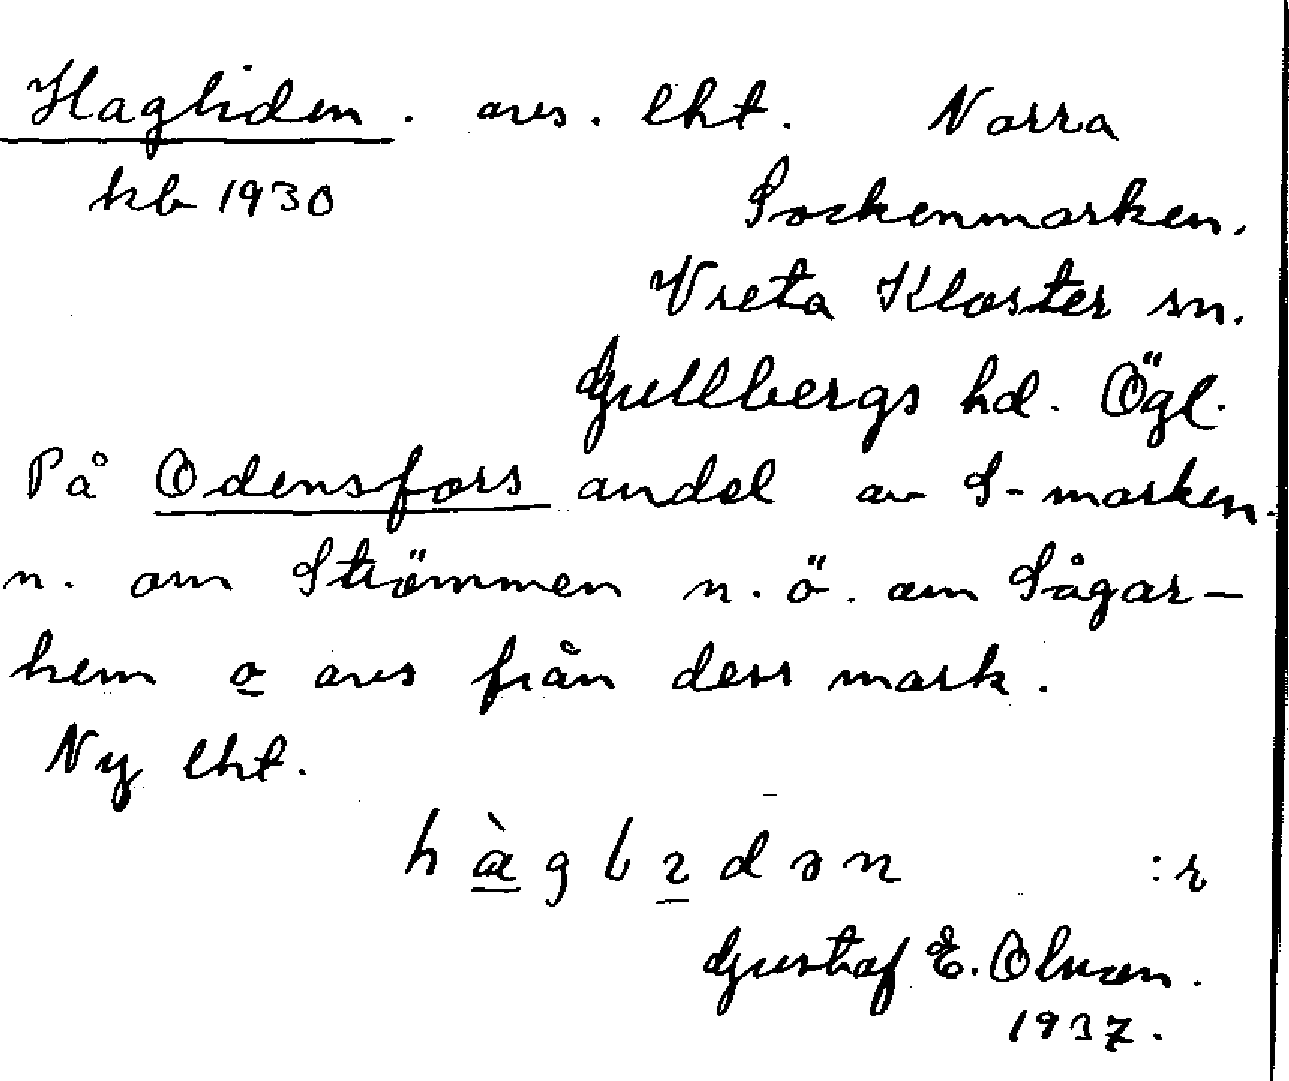 Hagliden. avs. lht. Norra
kb 1930
Sockenmarken.
Vreta Kloster sn.
Gullbergs hd. Ögl.
På Odensfors andel av S-marken.
n. om Strömmen n.ö. om Sågar-
hem o avs från dess mark.
Ny lht.
:r
Gustaf E. Olsson.
1937.